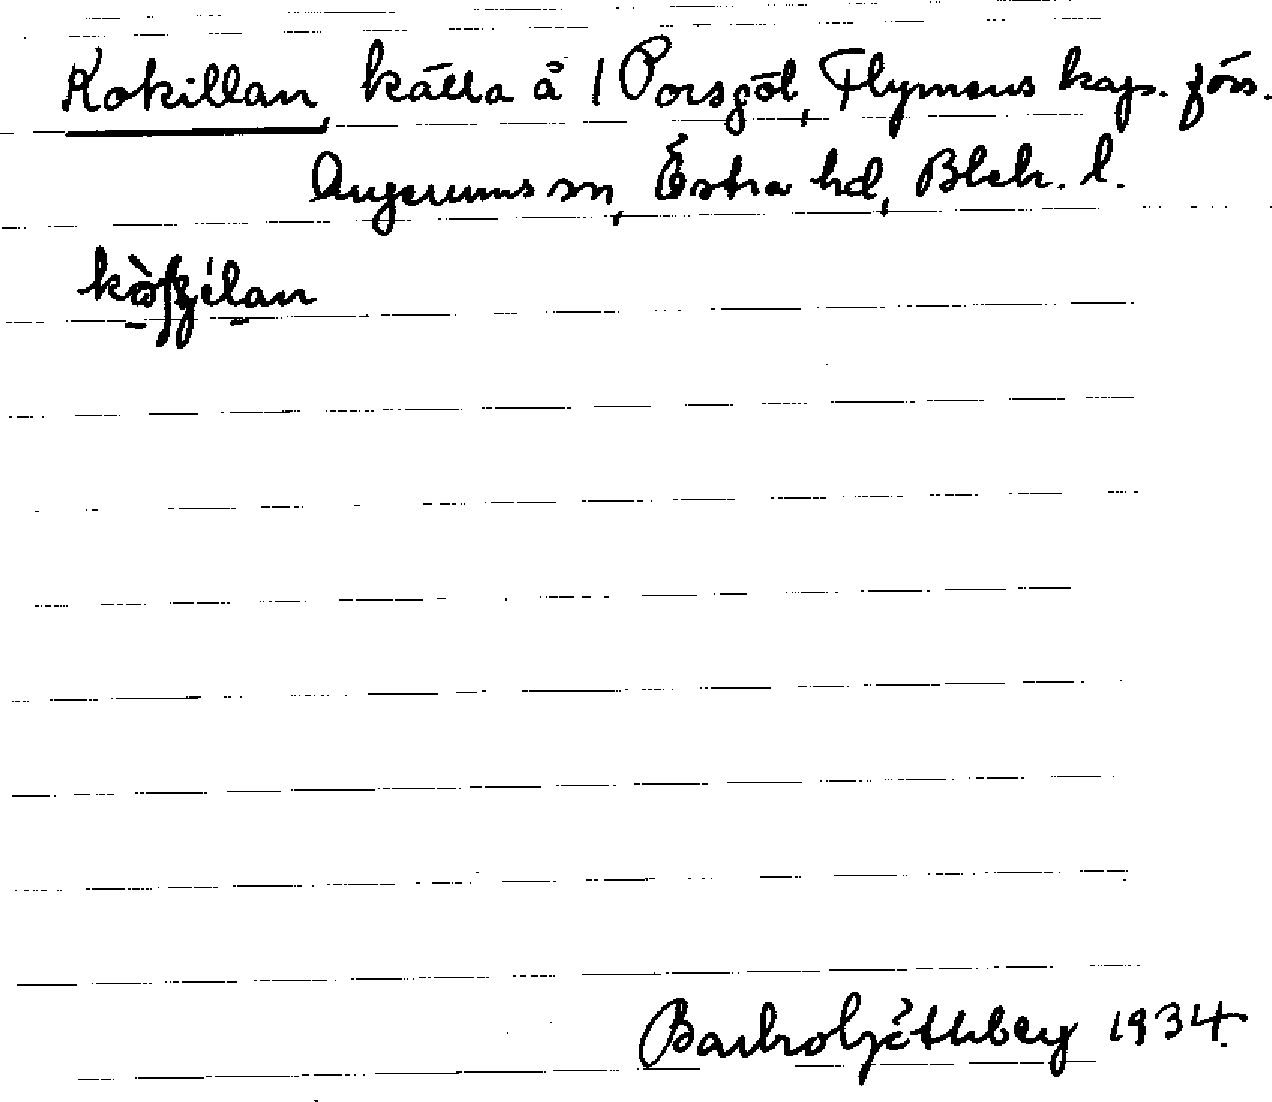 Kokillan, källa å 1 Porsgöl, Flymens kap. förs.
Augerums sn, Östra hd, Blek. l.
1934.